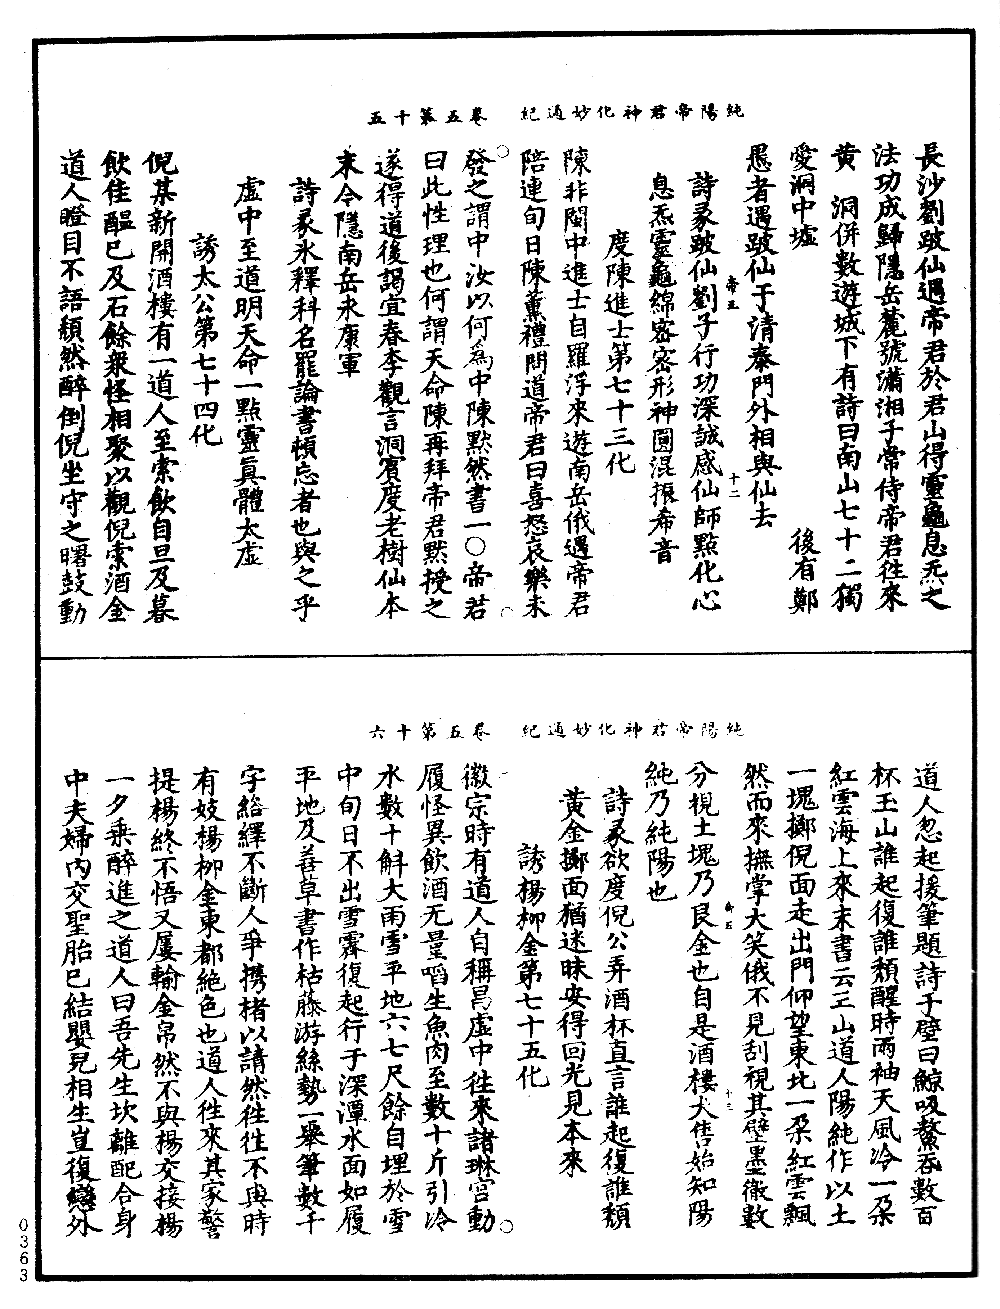 純陽帝君神化妙通紀　卷五第十五
長沙劉跛仙遇帝君於君山得靈龜息炁之
法功成歸隱岳麓號瀟湘子常侍帝君徃來
黃　洞併數遊城下有詩曰南山七十二獨
愛洞中墟　　　　　　　後有鄭
愚者遇跛仙于清泰門外相與仙去
帝五　十二
詩彖跛仙劉子行功深誠感仙師點化心
息炁靈龜綿密密形神圓混振希音
度陳進士第七十三化
陳非閩中進士自羅浮來遊南岳俄遇帝君
陪連旬日陳薰禮問道帝君曰喜怒哀樂未
發之謂中汝以何為中陳默然書一〇帝君
曰此性理也何謂天命陳再拜帝君黙授之
遂得道後謁宜春李觀言洞賓度老樹仙本
末今隱南岳永康軍
詩彖氷釋科名罷論書頓忘者也與之乎
虛中至道明天命一點靈真體太虛
誘太公第七十四化
倪某新開酒樓有一道人至索飲自旦及暮
飲佳醞已及石餘衆怪相聚以觀倪索酒金
道人瞪目不語頹然醉倒倪坐守之曙鼓動
純陽帝君神化妙通紀　卷五第十六
道人忽起援筆題詩于壁曰鯨吸鰲吞數百
杯玉山誰起復誰頹醒時兩袖天風冷一朶
紅雲海上來末書云三山道人陽純作以土
一塊擲倪面走出門仰望東北一朶紅雲飄
然而來撫掌大笑俄不見刮視其壁墨徹數
分視土塊乃良金也自是酒樓大售始知陽
帝五　十三
純乃純陽也
詩彖欲度倪公弄酒杯直言誰起復誰頹
黃金擲面猶迷昧安得回光見本來
誘楊柳金第七十五化
徽宗時有道人自稱昌虛中徃來諸琳宮動
履怪異飲酒无量啗生魚肉至數十斤引冷
水數十斛大雨雪平地六七尺餘自埋於雪
中旬日不出雪霽復起行于深潭水面如履
平地及善草書作枯藤游絲勢一舉筆數千
字絡繹不斷人爭携楮以請然徃徃不與時
有妓楊柳金東都絶色也道人徃來其家警
提楊終不悟又屢輸金帛然不與楊交接楊
一夕乘醉進之道人曰吾先生坎離配合身
中夫婦內交聖胎已結嬰兒相生豈復戀外
0363